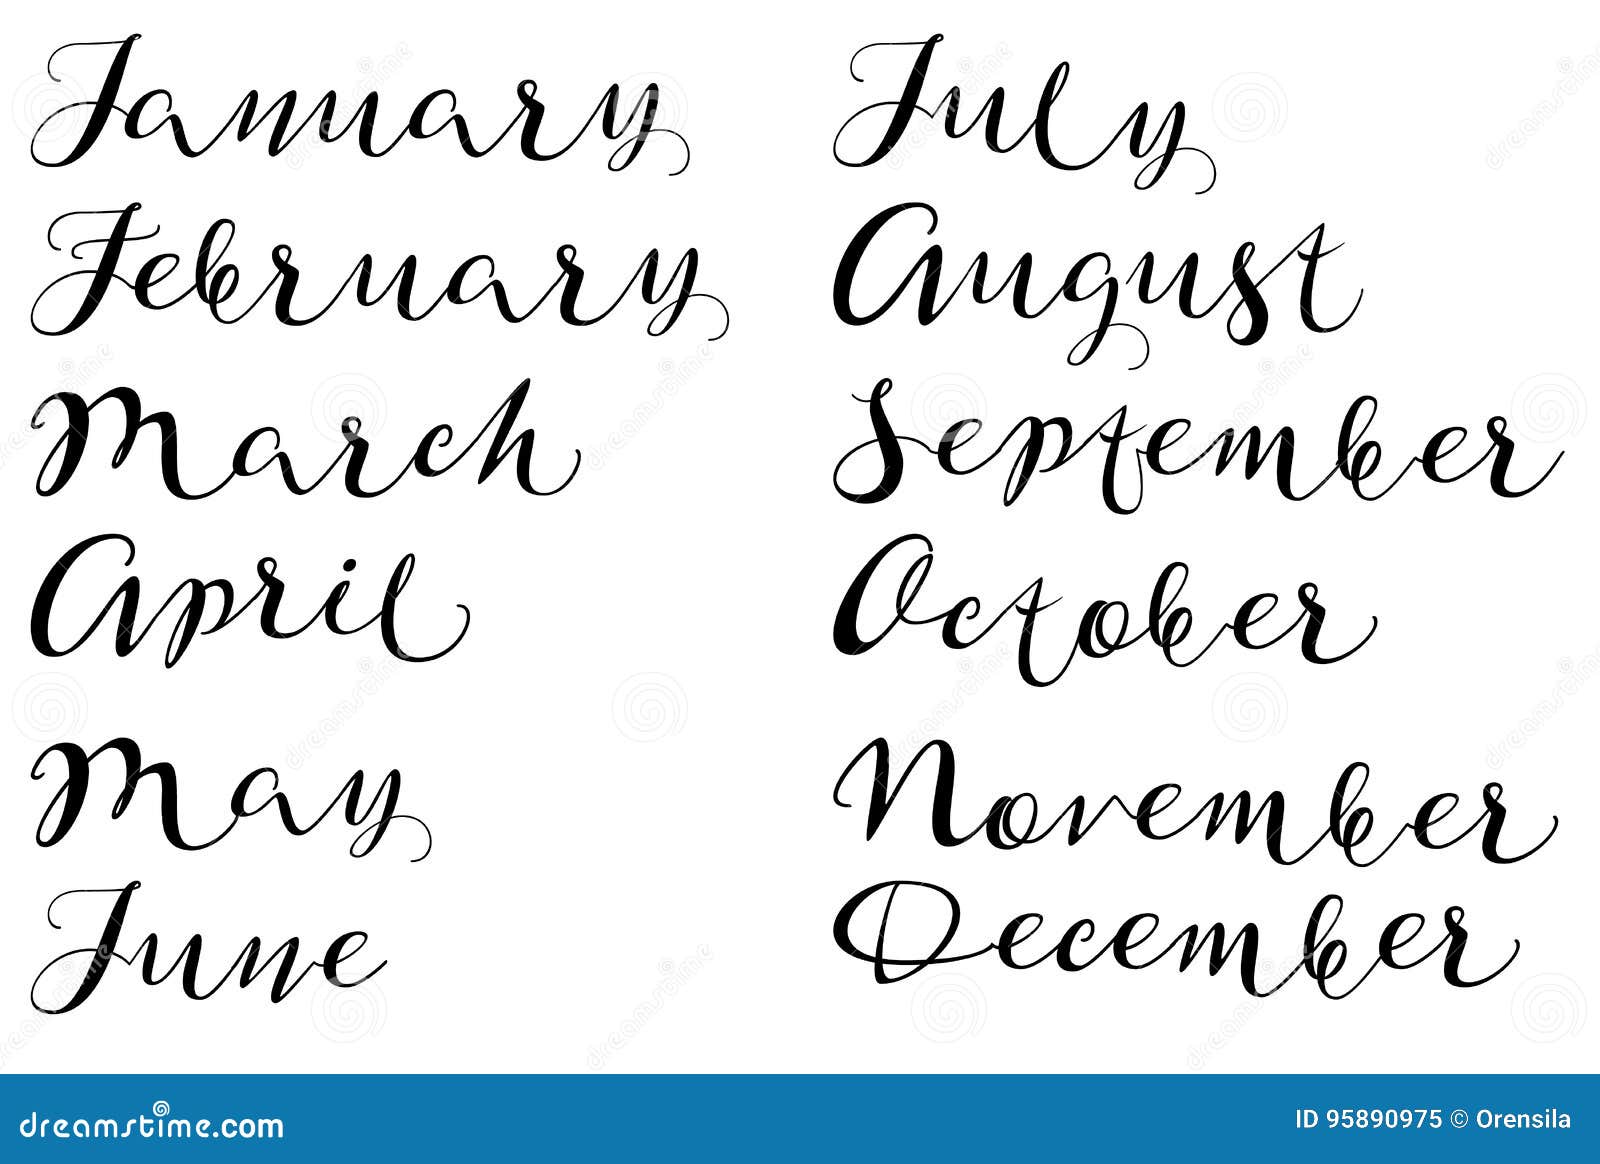 January
February
March
April
May
June
July
August
September
October
November
December
dreamstime.com
ID 95890975 © Orensila